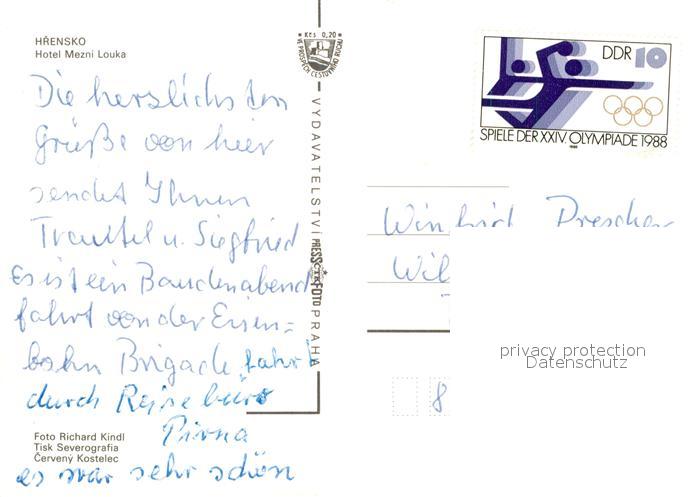 HŘENSKO
Hotel Mezní Louka
Die herzlichsten
Grüße von hier
sendet Ihnen
Trauttel u. Siegfried
Es ist ein Baudenabend
fahrt von der Eisen=
bahn Brigade fahrt
durch Reisebüro
Pirna
es war sehr schön
Foto Richard Kindl
Tisk Severografia
Červený Kostelec
Kčs 0,20
VE PROSPĚCH CESTOVNÍHO RUCHU
VYDAVATELSTVÍ PRESSFOTO PRAHA
ČTK
DDR 10
SPIELE DER XXIV. OLYMPIADE 1988
Winfried Drescher
Wil
8
privacy protection
Datenschutz